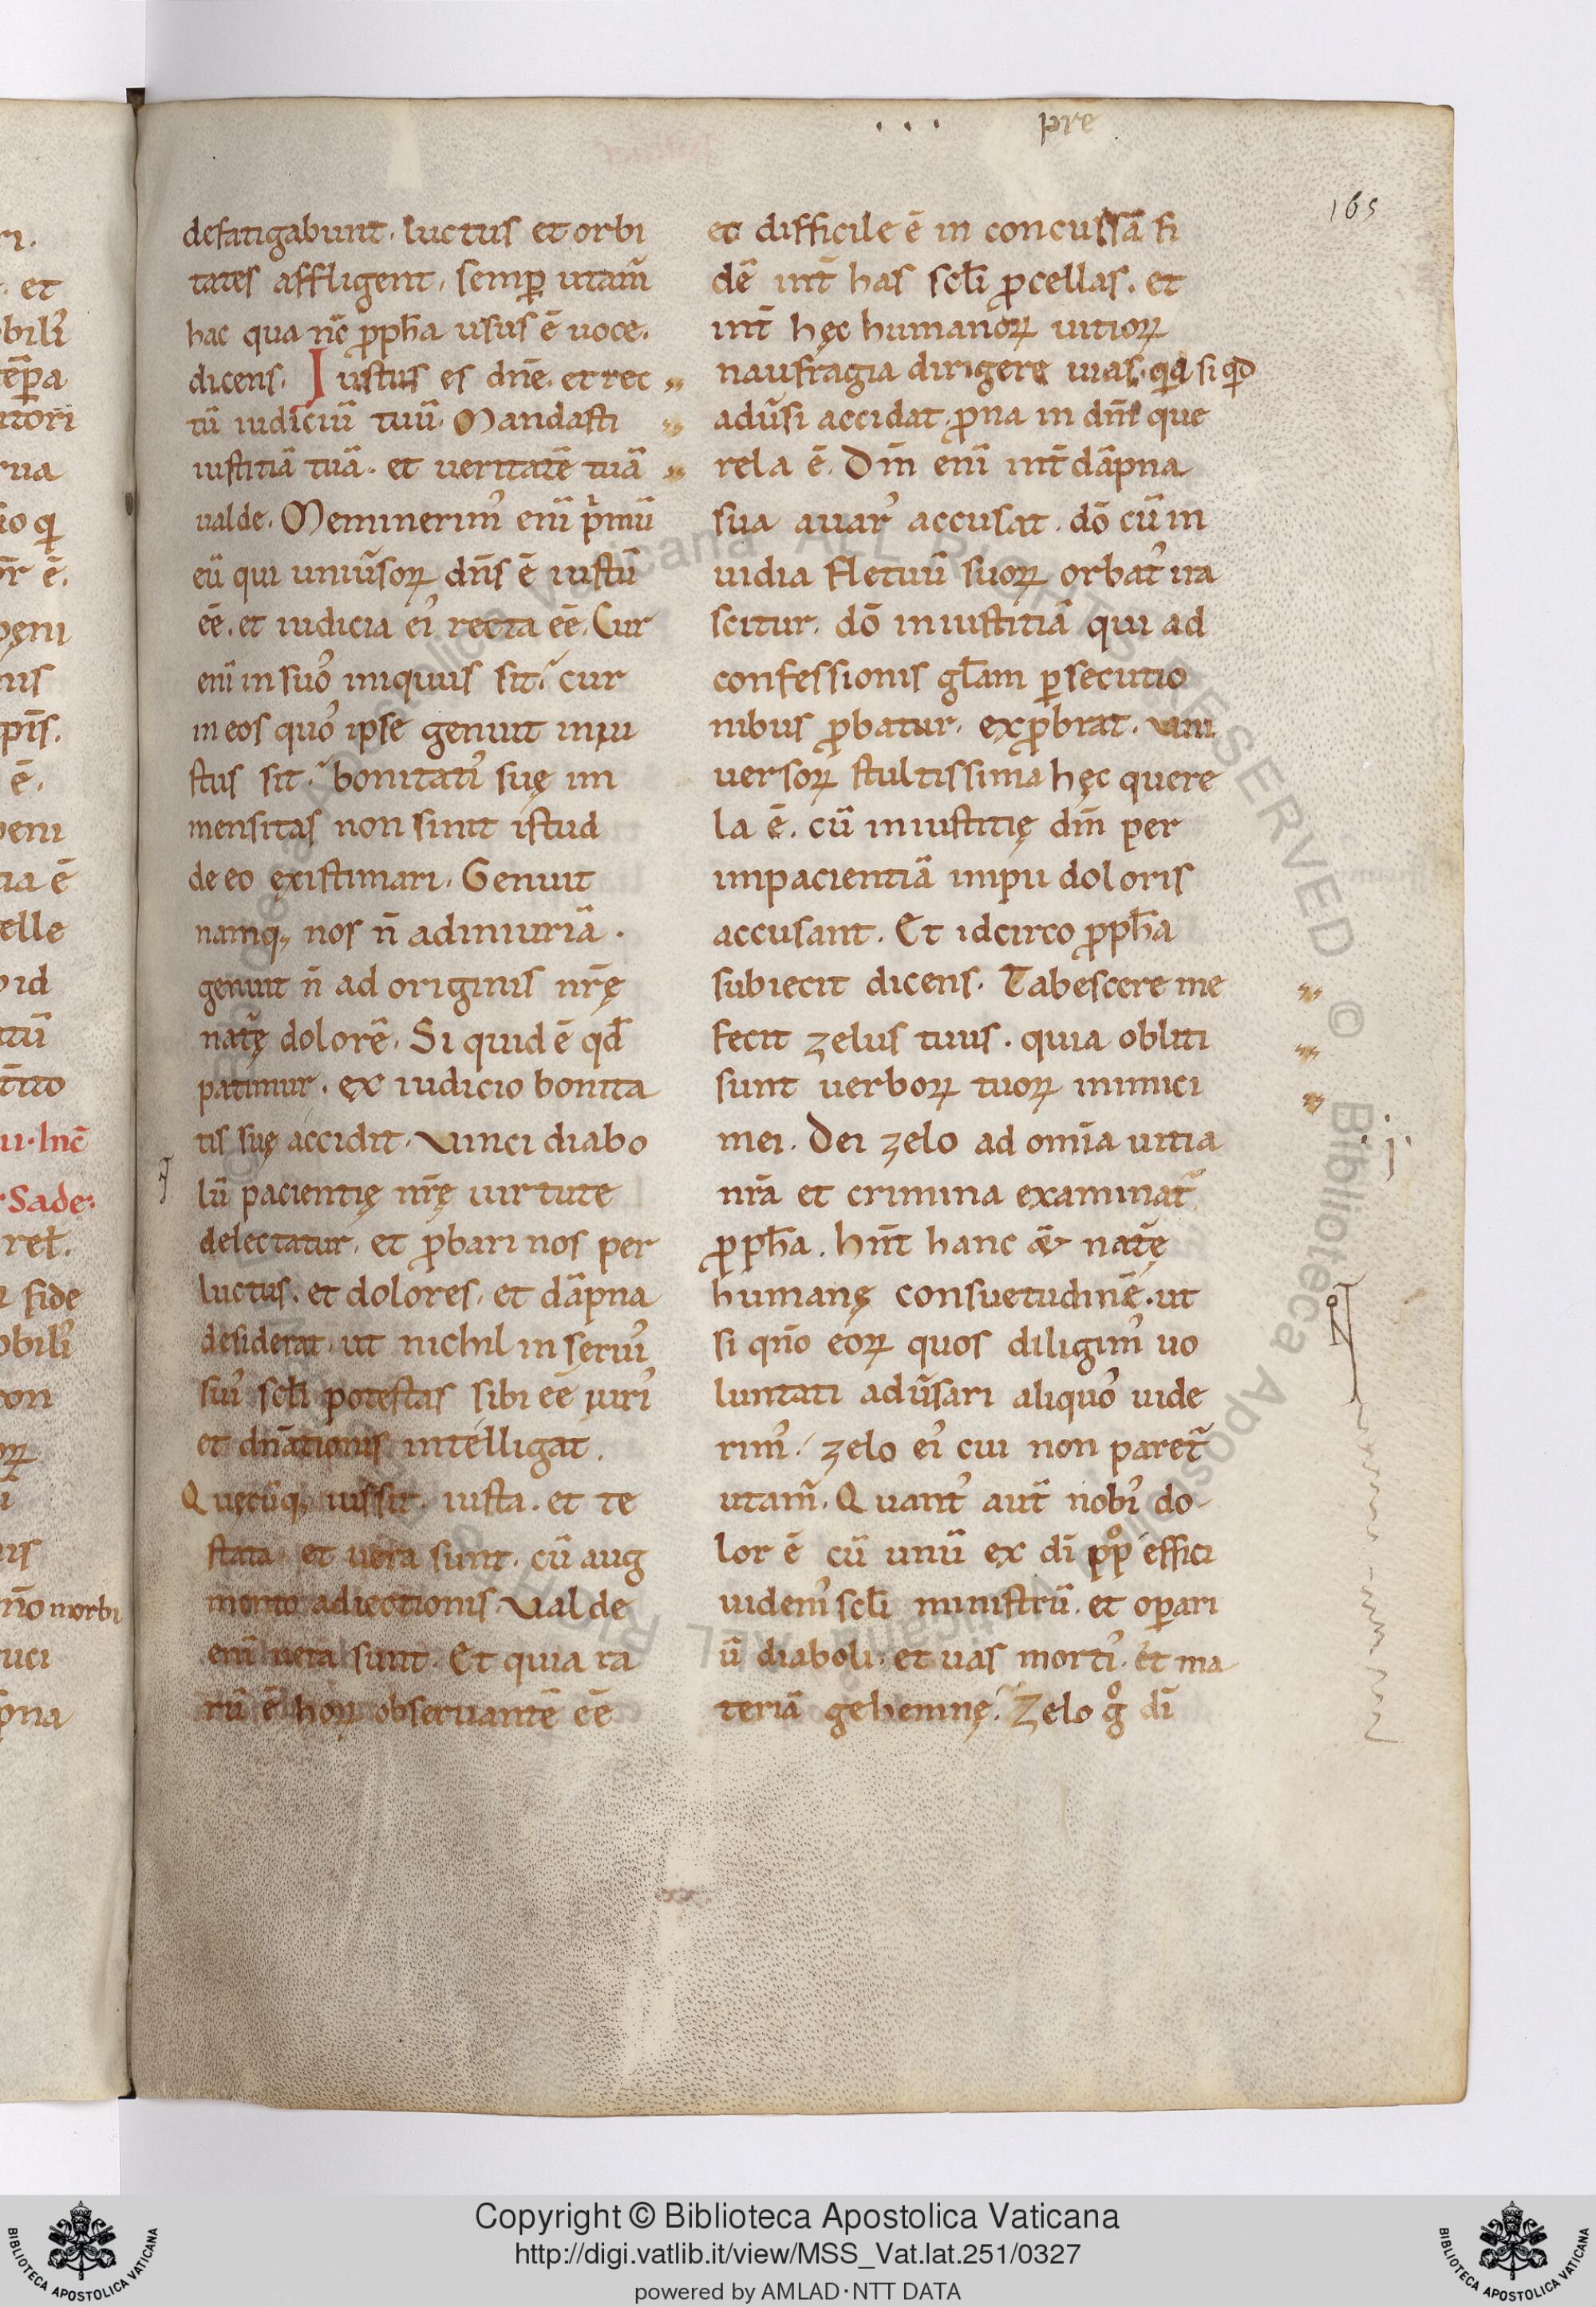 pre
165
defatigabunt. luctus et orbi
tates affligent, semꝑ utam̄
hac qua nc̄ ꝓph̄a usus ē uoce.
dicens. Iustus es dn̄e. et rec
tū iudiciū tuū. Mandasti
iustitiā tuā. et ueritatē tuā
ualde. Meminerim᾿ enī pⁱmū
eū qui uniūsoꝝ dn̄s ē iustū
eē. et iudicia ei᾿ recta eē. Cur
enī in suo᾿ iniquus sit? cur
in eos quo᾿ ipse genuit iniu
stus sit? bonitati᾿ suę im
mensitas non sinit istud
de eo ęxistimari. Genuit
namq; nos n̄ adiniuriā.
genuit n̄ ad originis nr̄ę
nat̄ę dolorē. Si quid ē qd̄
patimur. ex iudicio bonita
tis suę accidit. Vinci diabo
lū pacientię nr̄ę uirtute
delectatur, et ꝓbari nos per
luctus. et dolores, et dāpna
desiderat. ut nichil in serui᾿
sui᾿ scl̄i potestas sibi eē iuri᾿
et dn̄ationis intelligat.
Quęcūq; iussit. iusta. et te
stata et uera sunt. cū aug
mento adiectionis. Valde
enī uera sunt. Et quia ra
rū ē hoꝝ obseruantē eē
et difficile ē in concussā fi
dē int̄ has scl̄i ꝓcellas. et
int̄ hęc humanoꝝ uitioꝝ
naufragia dirigere uias. qd si qd
adūsi accidat. ꝓna in dn̄m que
rela ē. Dm̄ enī int̄ dāpna
sua auar᾿ accusat. dō cū in
uidia fletuū suoꝝ orbat᾿ ira
scitur. dō iniustitiā qui ad
confessionis gl̄am ꝑsecutio
nibus ꝓbatur. exꝓbrat. Vni
uersoꝝ stultissima hęc quere
la ē. cū iniustitię dm̄ per
impacientiā impii doloris
accusant. Et idcirco ꝓph̄a
subiecit dicens. Tabescere me
fecit zelus tuus. quia obliti
sunt uerboꝝ tuoꝝ inimici
mei. Dei zelo ad om̄ia uitia
nr̄a et crimina examinat̄
ꝓph̄a. hn̄t hanc natę̄
humanę consuetudinē. ut
si qn̄o eoꝝ quos diligim᾿ uo
luntati adūsari aliquo᾿ uide
rim᾿. zelo ei᾿ cui non paret̄
utam̄. Quant᾿ aut̄ nobi᾿ do
lor ē cū unū ex dī ppᵒ effici
uidem᾿ scl̄i ministrū. et oꝑari
ū diaboli. et uas morti᾿. et ma
teriā gehennę. Zelo gᵒ dī
Copyright © Biblioteca Apostolica Vaticana
http://digi.vatlib.it/view/MSS_Vat.lat.251/0327
powered by AMLAD·NTT DATA
BIBLIOTECA APOSTOLICA VATICANA
BIBLIOTECA APOSTOLICA VATICANA